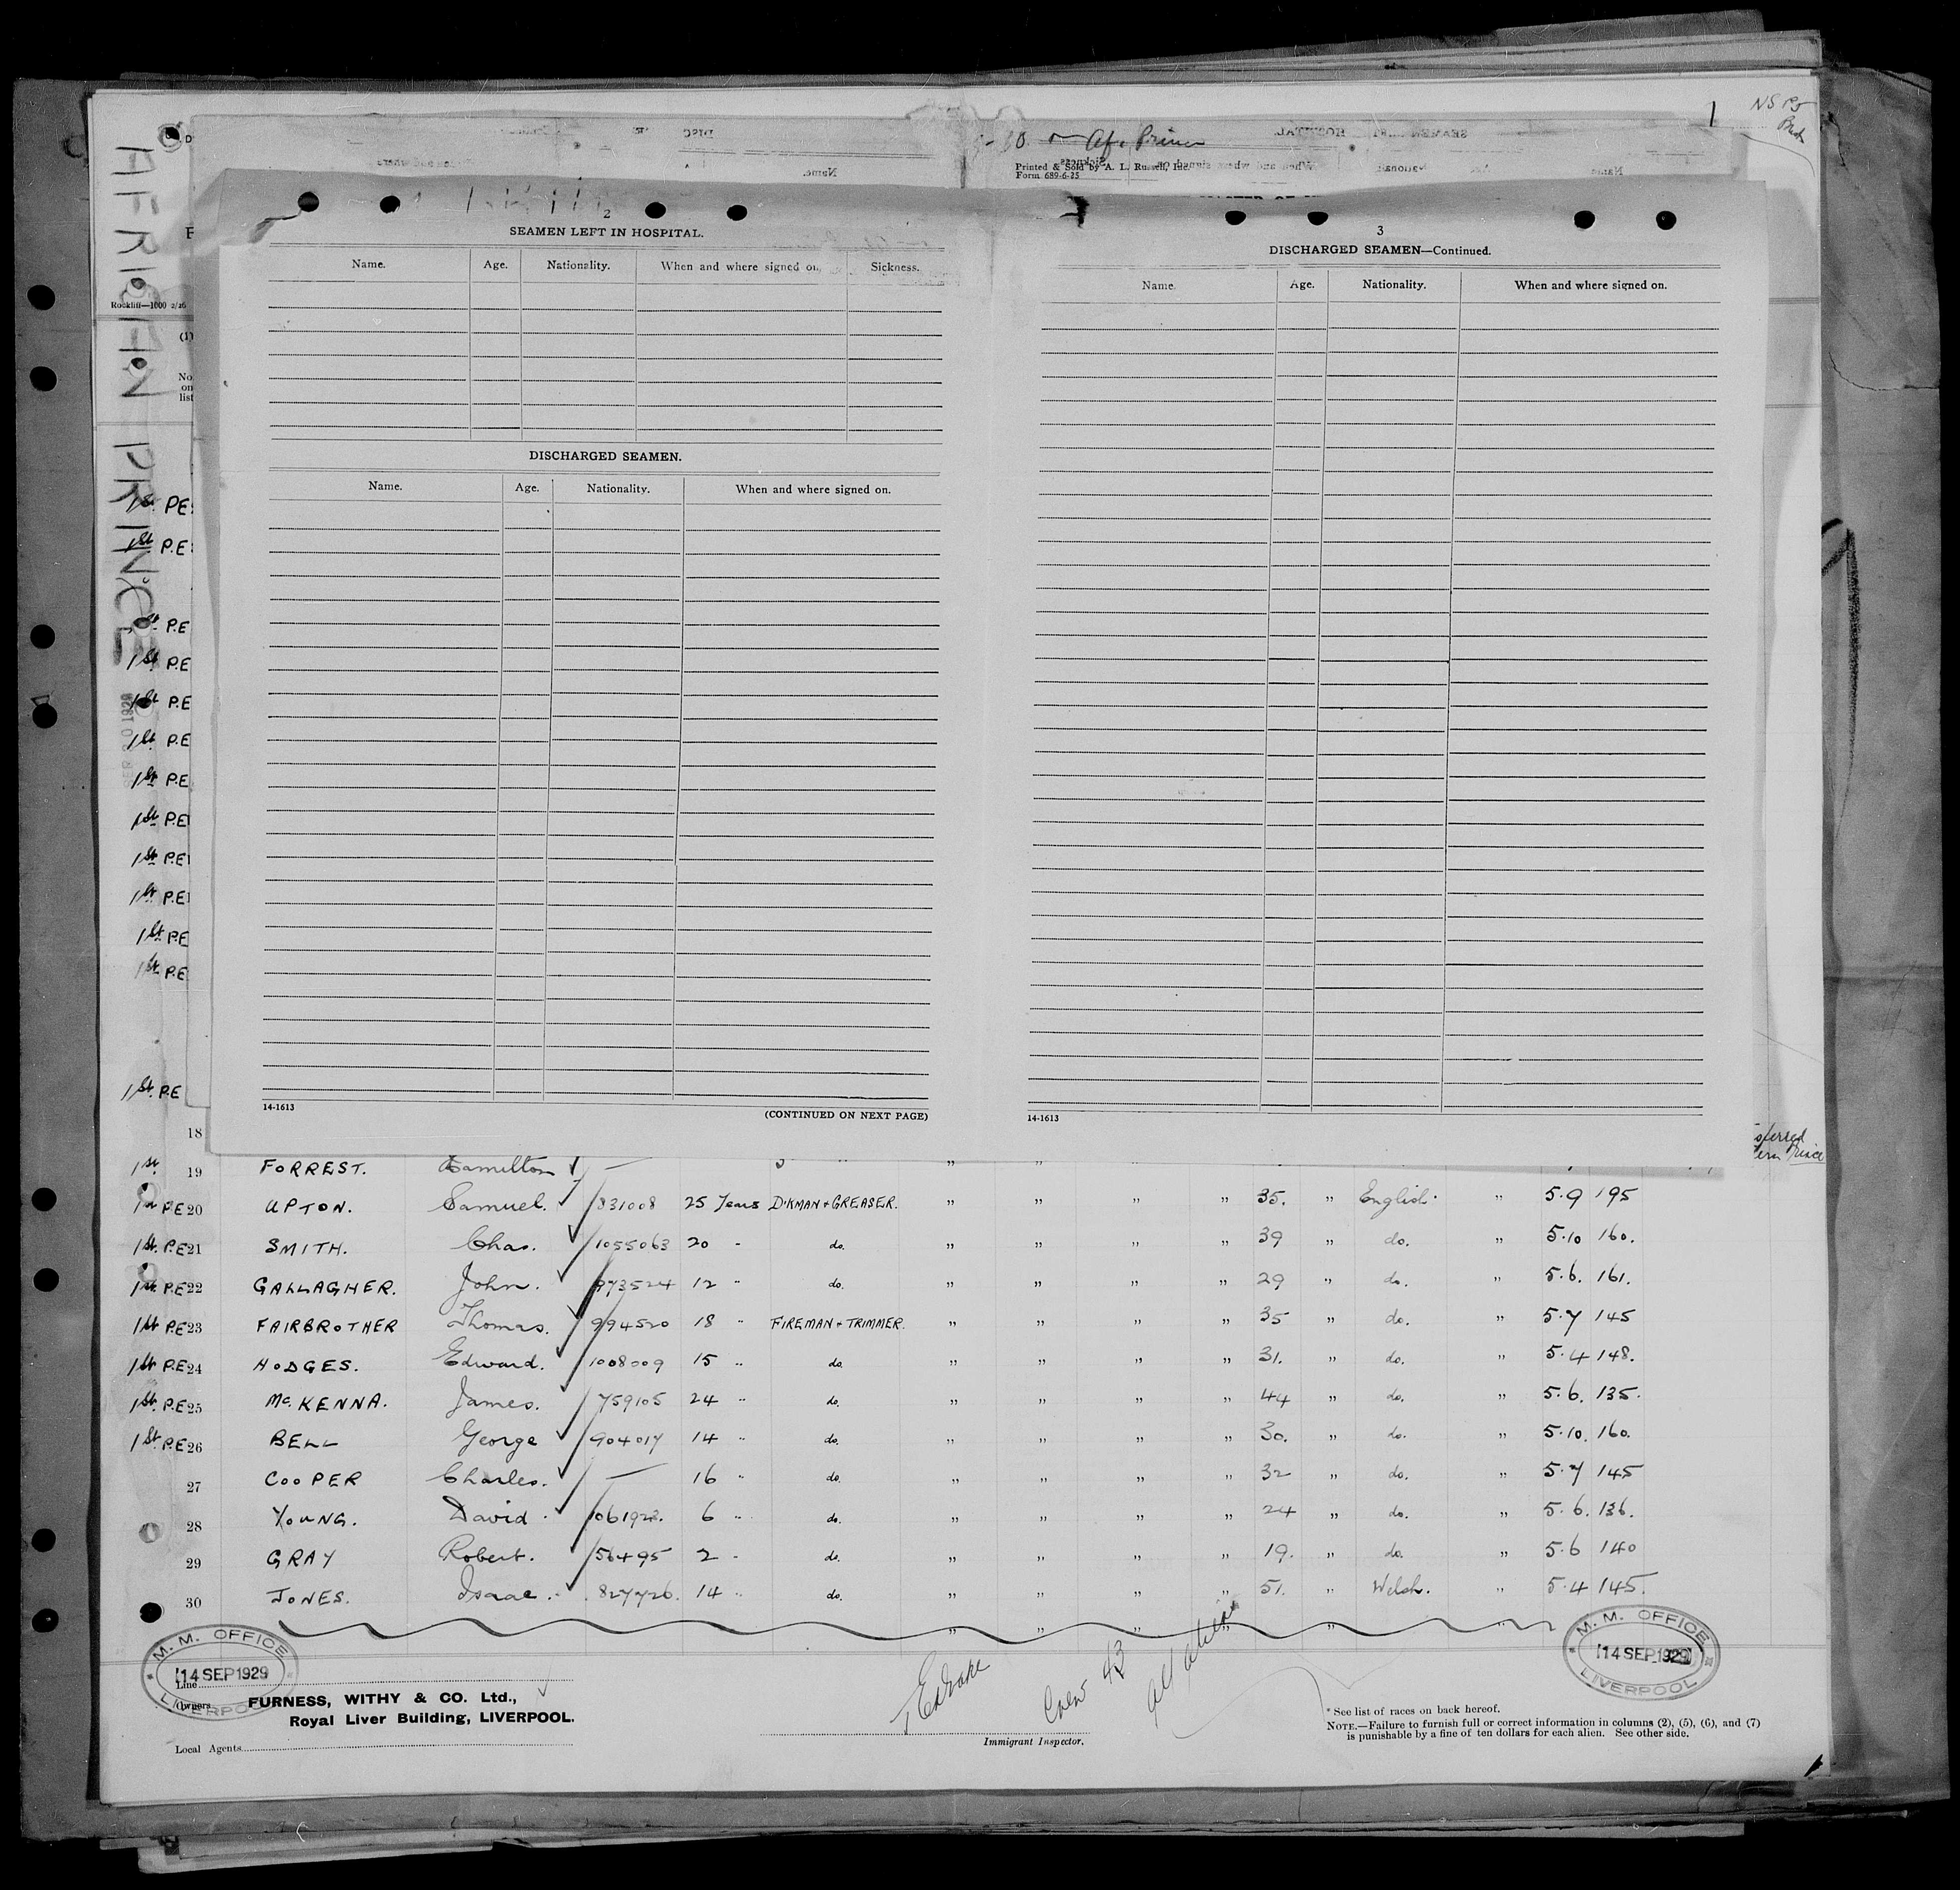 NS Pg
AFRICAN PRINCE
Afr. Prince
Printed & Sold by A. L. Russell, Inc.
Form 689-6-25
Rockliff—1000 2/26
2
SEAMEN LEFT IN HOSPITAL.
Name. Age. Nationality. When and where signed on. Sickness.
DISCHARGED SEAMEN.
Name. Age. Nationality. When and where signed on.
14-1613 (CONTINUED ON NEXT PAGE)
3
DISCHARGED SEAMEN—Continued.
Name. Age. Nationality. When and where signed on.
14-1613
1st P.E
1st P.E
1st P.E
1st P.E
1st P.E
1st P.E
1st P.E
1st P.E
1st P.E
1st P.E
1st P.E
1st P.E
1st P.E
18
1st 19 FORREST. Hamilton —
1st P.E 20 UPTON. Samuel. 831008 25 Years D'KMAN + GREASER. " " " " 35. " English. " 5.9 195
1st P.E 21 SMITH. Chas. 1055063 20 " do. " " " " 39 " do. " 5.10 160.
1st P.E 22 GALLAGHER. John. 973524 12 " do. " " " " 29 " do. " 5.6. 161.
1st P.E 23 FAIRBROTHER Thomas. 994520 18 " FIREMAN + TRIMMER. " " " " 35 " do. " 5.7 145
1st P.E 24 HODGES. Edward. 1008009 15 " do. " " " " 31. " do. " 5.4 148.
1st P.E 25 McKENNA. James. 759105 24 " do. " " " " 44 " do. " 5.6. 135.
1st P.E 26 BELL George 904017 14 " do. " " " " 30. " do. " 5.10. 160.
27 COOPER Charles. — 16 " do. " " " " 32 " do. " 5.7 145
28 YOUNG. David. 1061923. 6 " do. " " " " 24 " do. " 5.6. 136.
29 GRAY Robert. 56495 2 " do. " " " " 19. " do. " 5.6 140
30 JONES. Isaac. 827726. 14 " do. " " " " 51. " Welsh. " 5.4 145.
" " " " " "
M. M. OFFICE
14 SEP 1929
LIVERPOOL
M. M. OFFICE
14 SEP 1929
LIVERPOOL
Line
Owners
FURNESS, WITHY & CO. Ltd.,
Royal Liver Building, LIVERPOOL.
Local Agents
Crew 43
Immigrant Inspector.
* See list of races on back hereof.
NOTE.—Failure to furnish full or correct information in columns (2), (5), (6), and (7)
is punishable by a fine of ten dollars for each alien. See other side.